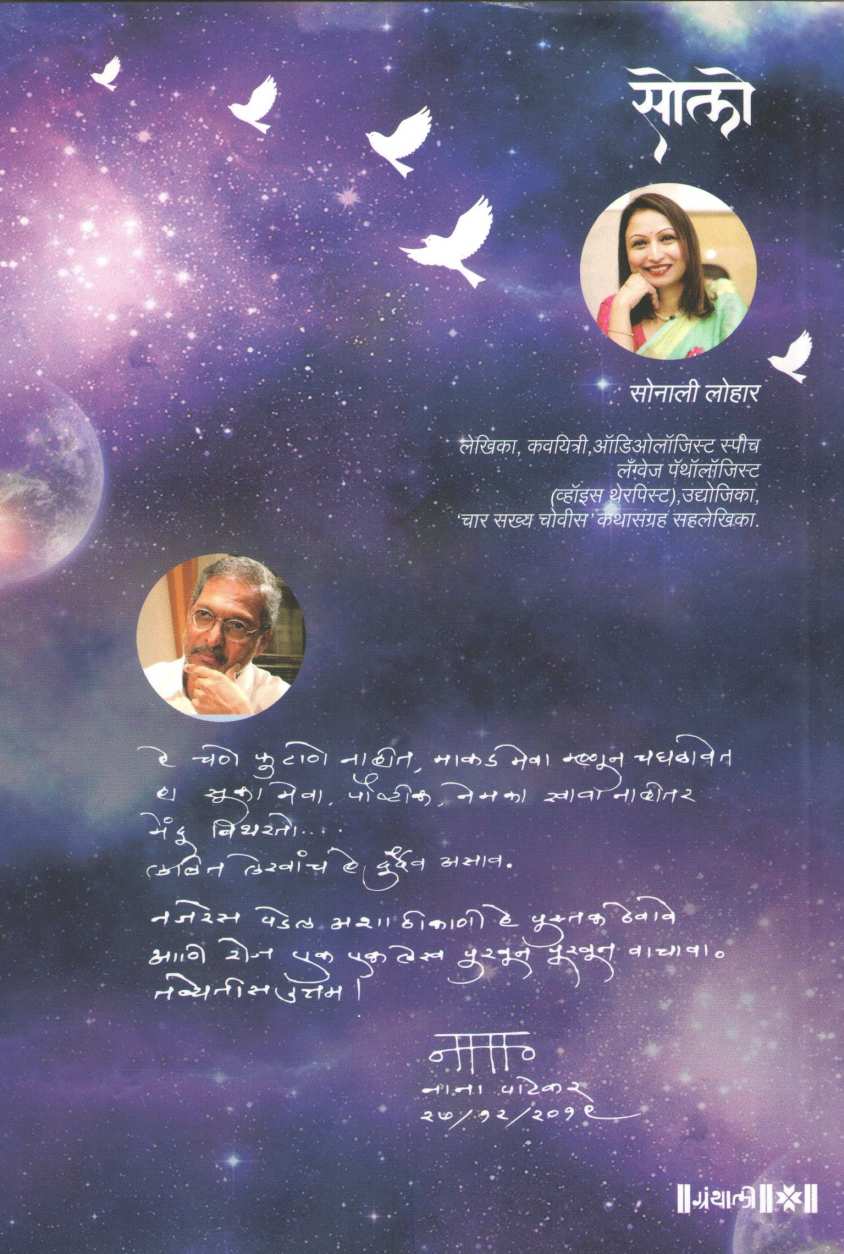 सोत्को
सोनाली लोहार
लेखिका, कवयित्री,ऑडिओलॉजिस्ट स्पीच
लँग्वेज पॅथॉलॉजिस्ट
(व्हॉइस थेरपिस्ट),उद्योजिका,
'चार सख्य चोवीस' कथासंग्रह सहलेखिका.
हे चणे फुटाणे नाहीत, माकड मेवा म्हणून चघळावेत
हा सूका मेवा, पौष्टीक, नेमका खावा नाहीतर
मेंदू बिथरतो....
ललित लेखांचं हे दुर्दैव असाव.
नजरेस पडेल अशा ठिकाणी हे पुस्तक ठेवावे
आणि रोज एक एक लेख पुरवून पूरवून वाचावा.
तब्येतीस उत्तम।
नाना
नाना पाटेकर
२७/१२/२०१९
॥ग्रंथाली॥